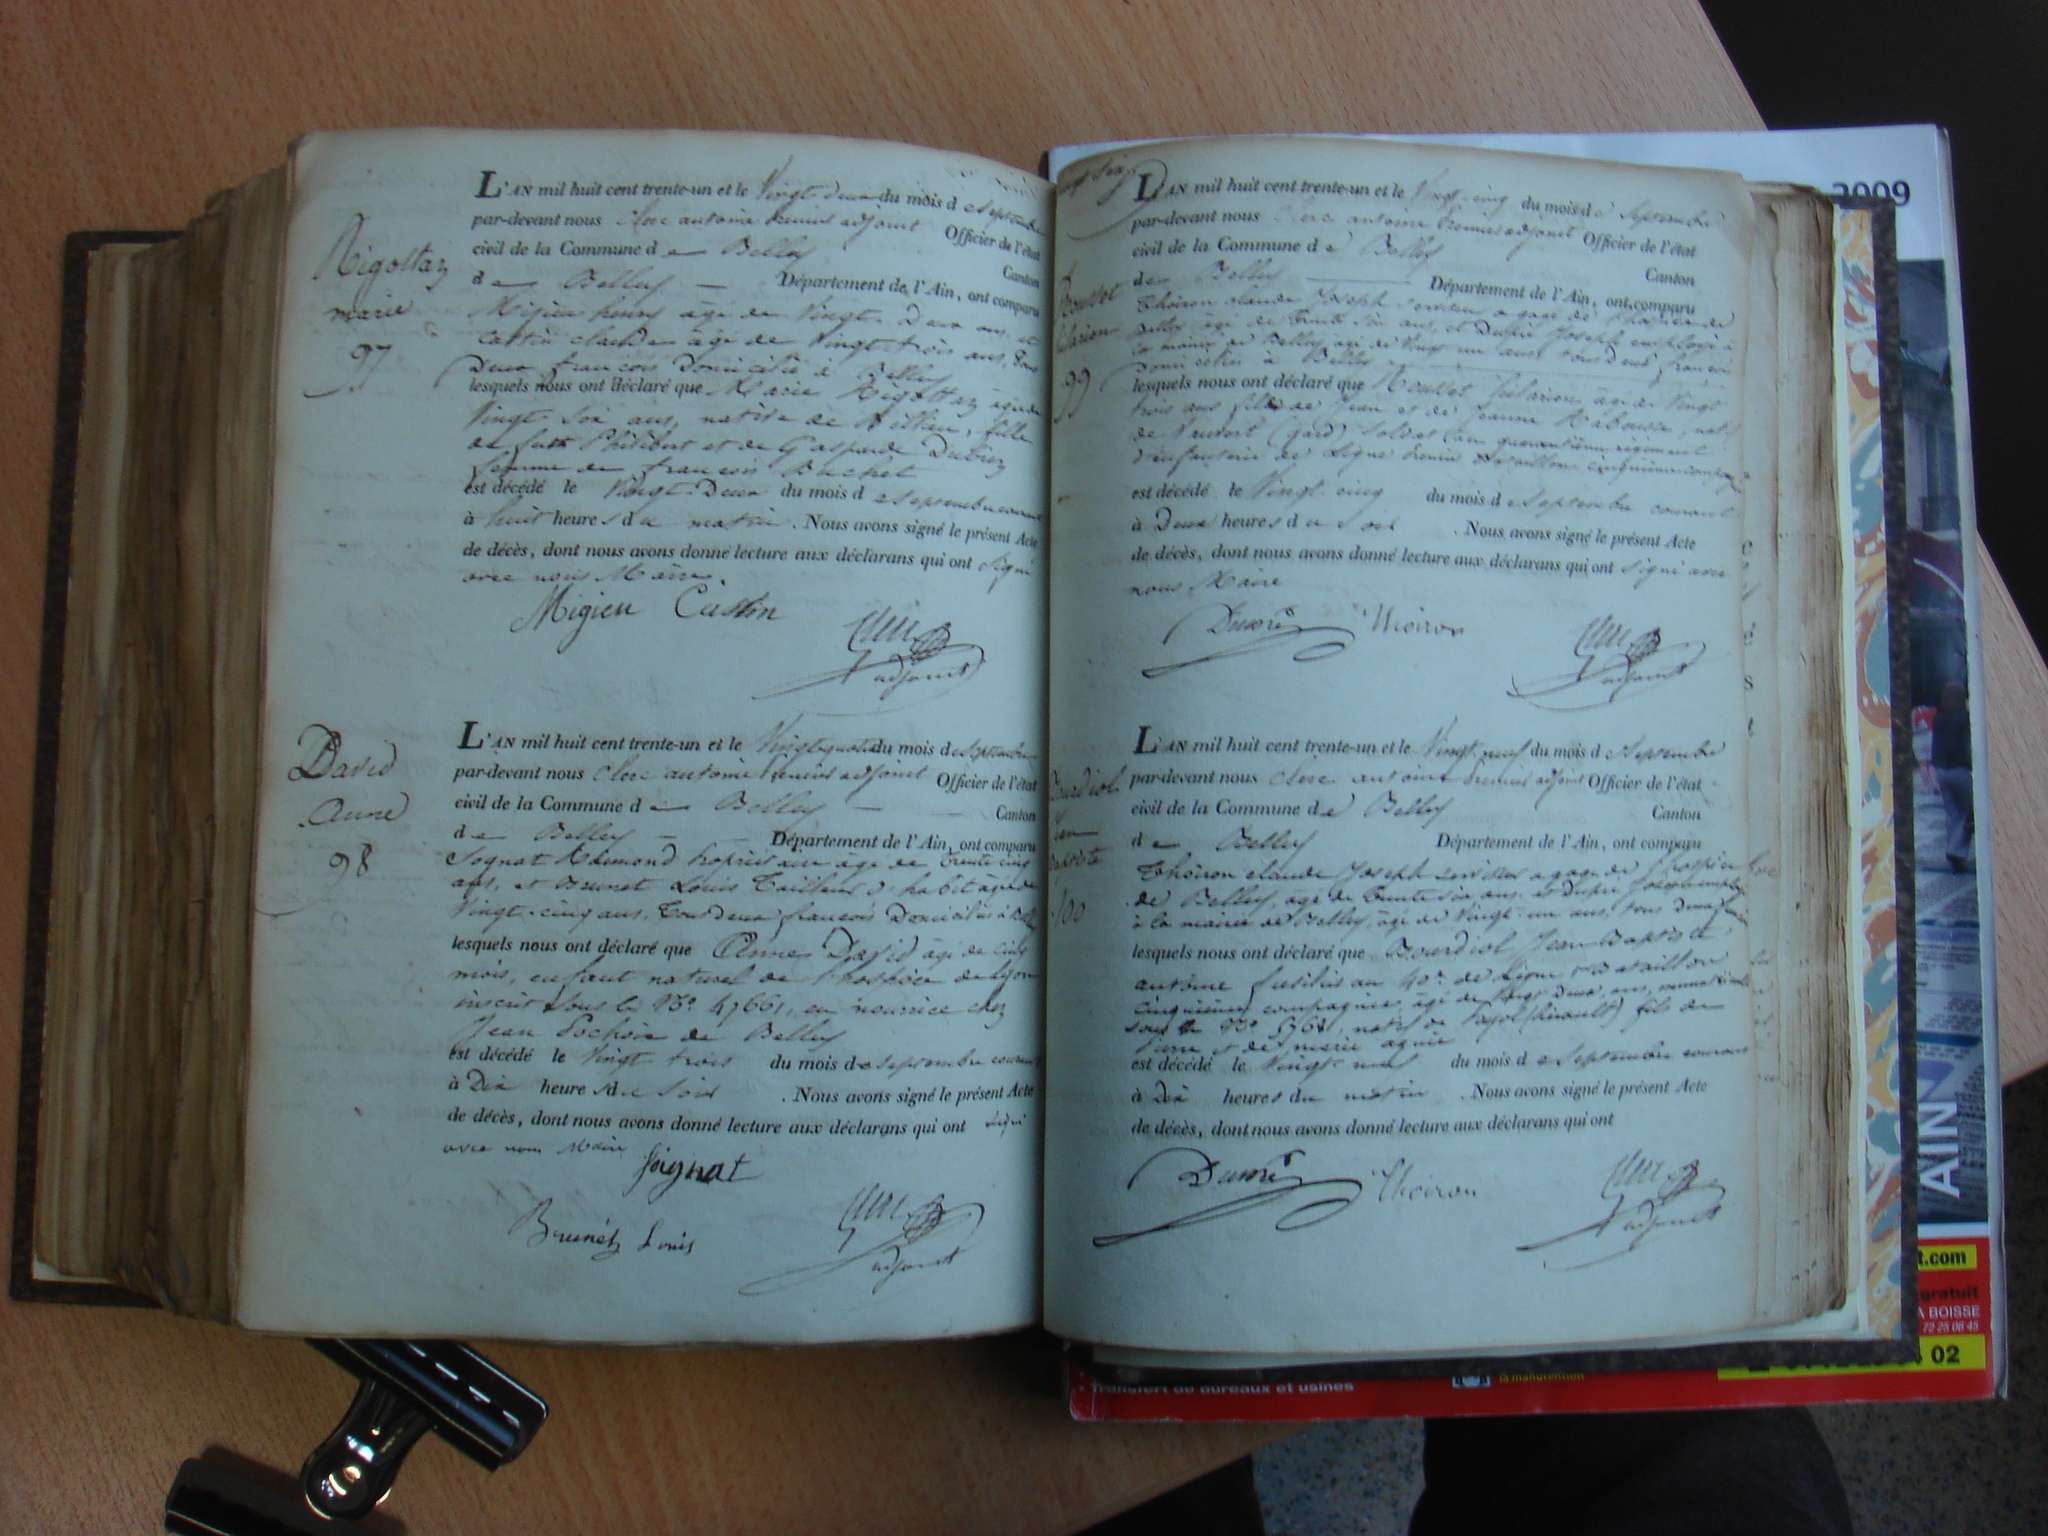 Rigottaz
marie
97
L'AN mil huit cent trente-un et le Vingt-deux du mois de septembre
par-devant nous Clerc antoine premier adjoint Officier de l'état
civil de la Commune de Belley Canton
de Belley Département de l'Ain, ont comparu
Migieu henry âgé de Vingt-Deux ans, et
Castin claude âgé de Vingt-trois ans, tous
Deux françois Domiciliés à Belley
lesquels nous ont déclaré que Marie Rigottaz âgée de
Vingt Six ans, native de fille
de Philibert et de Gasparde
femme de françois Buchet
est décédé le Vingt-Deux du mois de septembre courant
à huit heures du matin. Nous avons signé le présent Acte
de décès, dont nous avons donné lecture aux déclarans qui ont signé
avec nous Maire.
Migieu Castin
Clerc
adjoint
David
Anne
98
L'AN mil huit cent trente-un et le Vingtquatre du mois de Septembre
par-devant nous Clerc antoine premier adjoint Officier de l'état
civil de la Commune de Belley Canton
de Belley Département de l'Ain, ont comparu
Sognat Raimond propriétaire âgé de trente cinq
ans, et Brunet Louis Tailleur d'habit âgé de
Vingt-cinq ans, Tous Deux françois Domiciliés à Belley
lesquels nous ont déclaré que Anne David âgé de cinq
mois, enfant naturel de l'hospice de Lyon
inscrit sous le No. 47661, en nourrice chez
Jean de Belley
est décédé le Vingt trois du mois de septembre courant
à Dix heures du soir. Nous avons signé le présent Acte
de décès, dont nous avons donné lecture aux déclarans qui ont signé
avec nous Maire
Soignat
Brunet Louis
Clerc
adjoint
Rousset
hilarion
99
L'AN mil huit cent trente-un et le Vingt-cinq du mois de Septembre
par-devant nous Clerc antoine premier adjoint Officier de l'état
civil de la Commune de Belley Canton
de Belley Département de l'Ain, ont comparu
Thoiron claude Joseph serviteur a gage de l'hospice de
Belley âgé de Trente Six ans, et Dupré Joseph employé à
la mairie de Belley âgé de Vingt un ans, tous Deux françois
Domiciliés à Belley
lesquels nous ont déclaré que Rousset hilarion âgé de Vingt
trois ans fils de Jean et de Jeanne natif
de (gard) Soldat au quarantième régiment
d'infanterie de Ligne premier Bataillon cinquième compagnie
est décédé le Vingt-cinq du mois de Septembre courant
à Deux heures du soir. Nous avons signé le présent Acte
de décès, dont nous avons donné lecture aux déclarans qui ont signé avec
nous Maire
Dupré Thoiron
Clerc
adjoint
Bourdiol
Jean
Baptiste
100
L'AN mil huit cent trente-un et le Vingt neuf du mois de Septembre
par-devant nous Clerc antoine premier adjoint Officier de l'état
civil de la Commune de Belley Canton
de Belley Département de l'Ain, ont comparu
Thoiron claude Joseph serviteur a gage de l'hospice
de Belley, âgé de Trente six ans, et Dupré Joseph employé
à la mairie de Belley, âgé de Vingt un ans, tous Deux
lesquels nous ont déclaré que Bourdiol Jean Baptiste
antoine fusilier au 40e. de Ligne Bataillon
cinquième compagnie âgé de Vingt Deux ans,
sous le No natif de (hérault) fils de
Pierre et de marie
est décédé le Vingt-neuf du mois de Septembre courant
à Dix heures du matin. Nous avons signé le présent Acte
de décès, dont nous avons donné lecture aux déclarans qui ont
Dupré Thoiron
Clerc
adjoint
2009
AIN
t.com
gratuit
A BOISSE
72 25 06 45
02
Transfert de bureaux et usines
la manutention